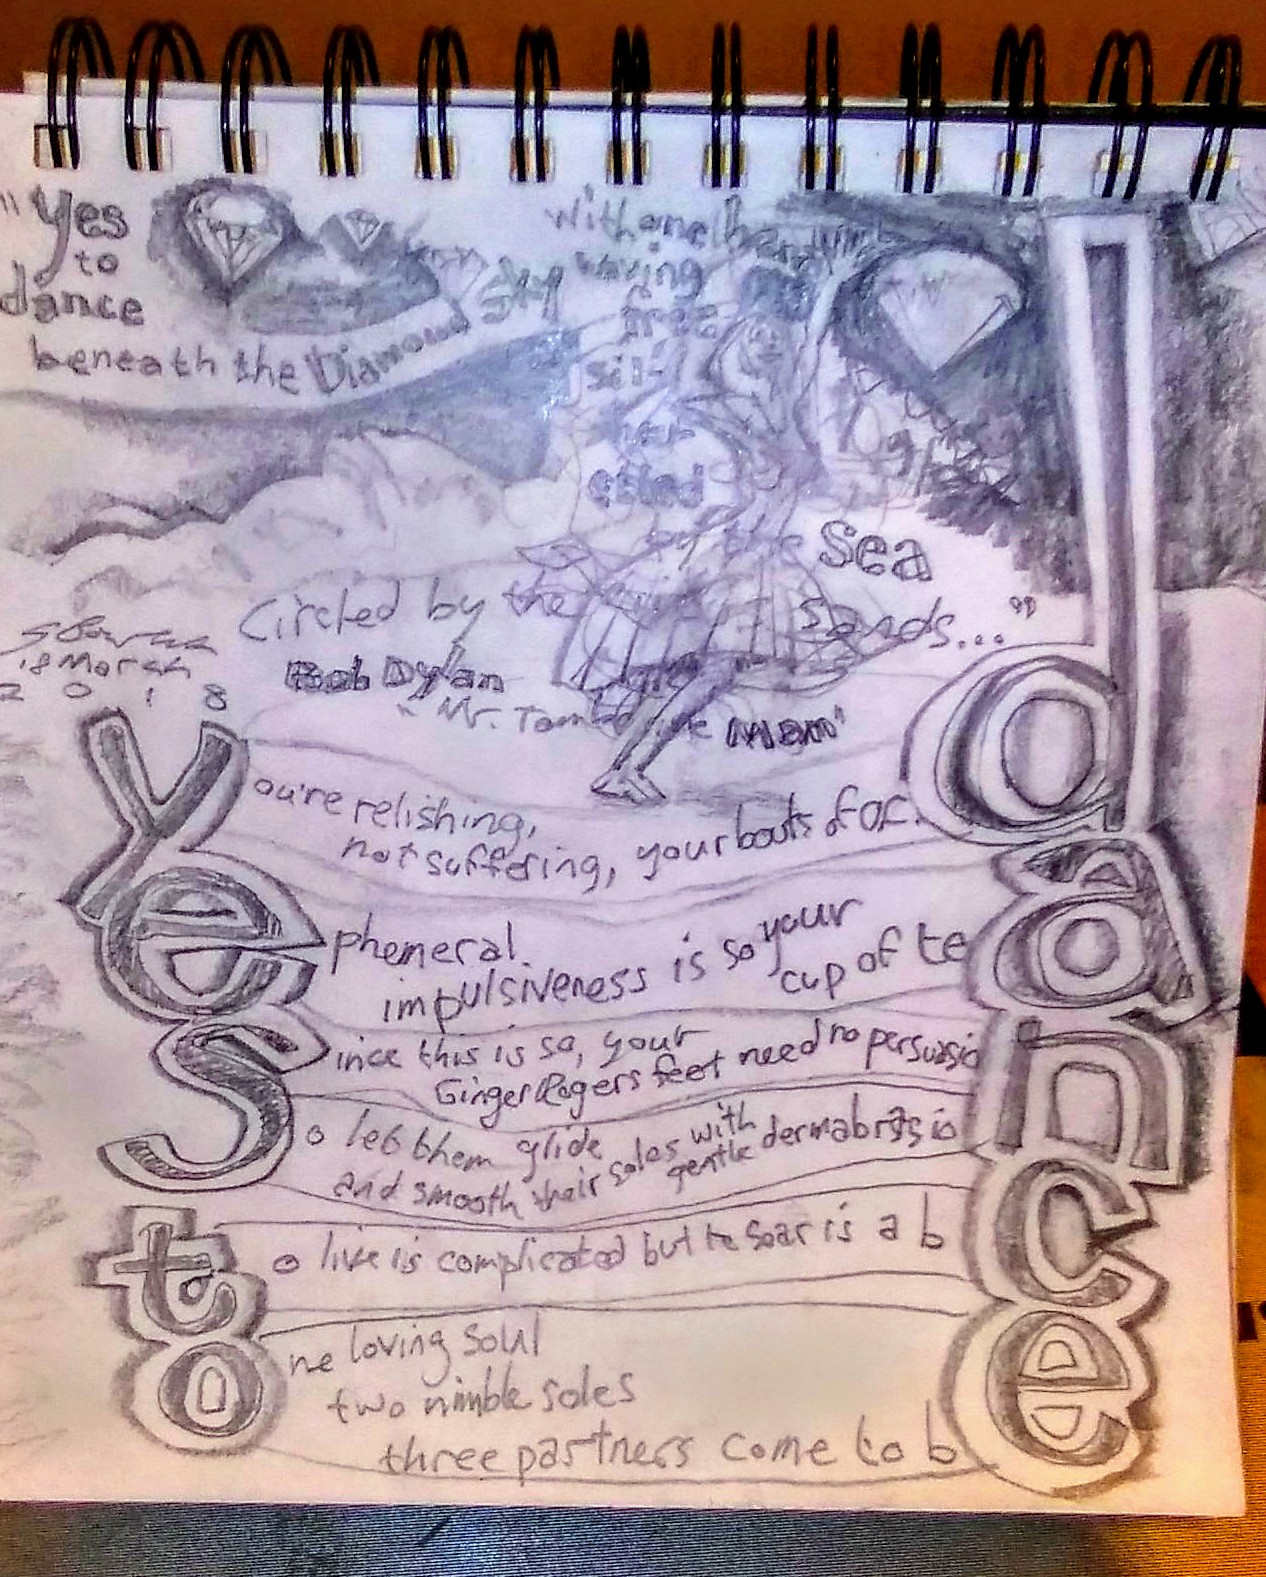 "Yes
to
dance
beneath the Diamond sky
with one hand
waving
free
sil-
ou-
etted
by the sea
Circled by the
sands..."
Bob Dylan
"Mr. Tambourine Man"
18 March
2018
You're relishing,
not suffering, your bouts of O.C.d
ephemeral.
impulsiveness is so your
cup of tea
Since this is so, your
Ginger Rogers feet need no persuasion
So let them glide
and smooth their soles with
gentle dermabrasion
to live is complicated but to soar is a b c
one loving soul
two nimble soles
three partners come to be